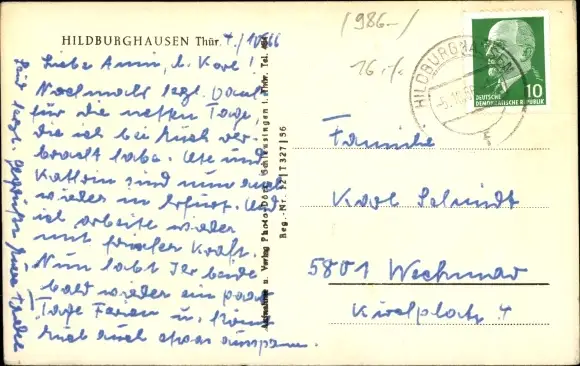 HILDBURGHAUSEN Thür. 7./10.66
Liebe Anni, l. Karl!
Nochmals herzl. Dank
für die netten Tage,
die ich bei Euch ver-
bracht habe. Ute und
Kathrin sind nun auch
wieder in Erfurt. Und
ich arbeite wieder
mit frischer Kraft.
Nun habt Ihr beide
bald wieder ein paar
Tage Ferien u. könnt
Euch auch etwas ausspannen.
Seid herzl. gegrüßt Eure
Aufnahme u. Verlag Photo-Dörr, Schleusingen i. Thür. Tel.
Reg.-Nr. 92 | T 327 | 56
(986.-)
16.-/.
HILDBURGHAUSEN
DEUTSCHE
DEMOKRATISCHE REPUBLIK 10
Familie
Karl Schmidt
5801 Wechmar
Kirchplatz 4